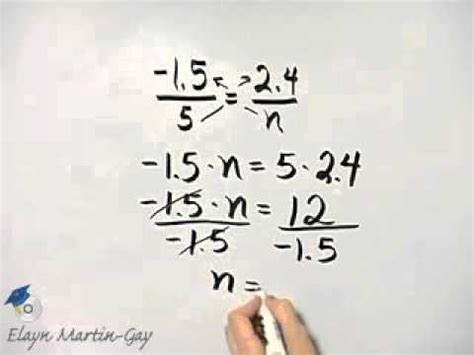 -1.5/5 = 2.4/n
-1.5 · n = 5 · 2.4
-1.5 · n/-1.5 = 12/-1.5
n =
Elayn Martin-Gay